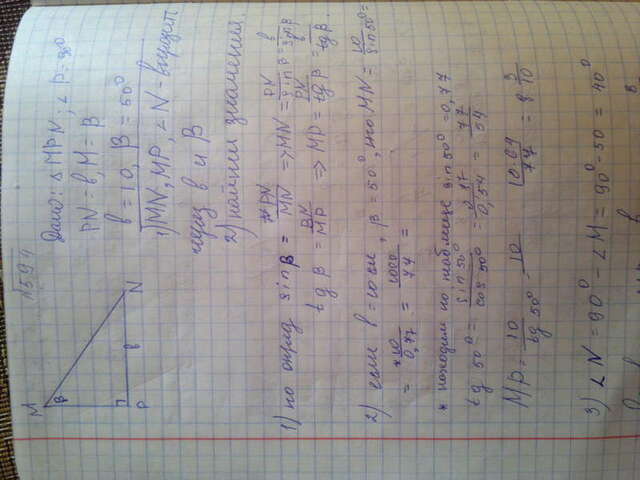 N594
Дано: Δ MPN; ∠ P=90°
PN = b, M = β
b = 10, β = 50°
1) MN, MP, ∠ N - выразит
через b и β
2) найти значения.
M
β
P
b
N
1) по опред sin β = PN/MN => MN = PN/sin β = b/sin β
tg β = PN/MP => MP = PN/tg β = b/tg β
2) если b=10 см, β = 50°, то MN = 10/sin 50° =
= 10/0,77 = 1000/77 =
* находим по таблице sin 50° = 0,77
tg 50° = sin 50°/cos 50° = 0,77/0,54 = 77/54
MP = 10/tg 50°
3) ∠ N = 90° - ∠ M = 90° - 50 = 40°